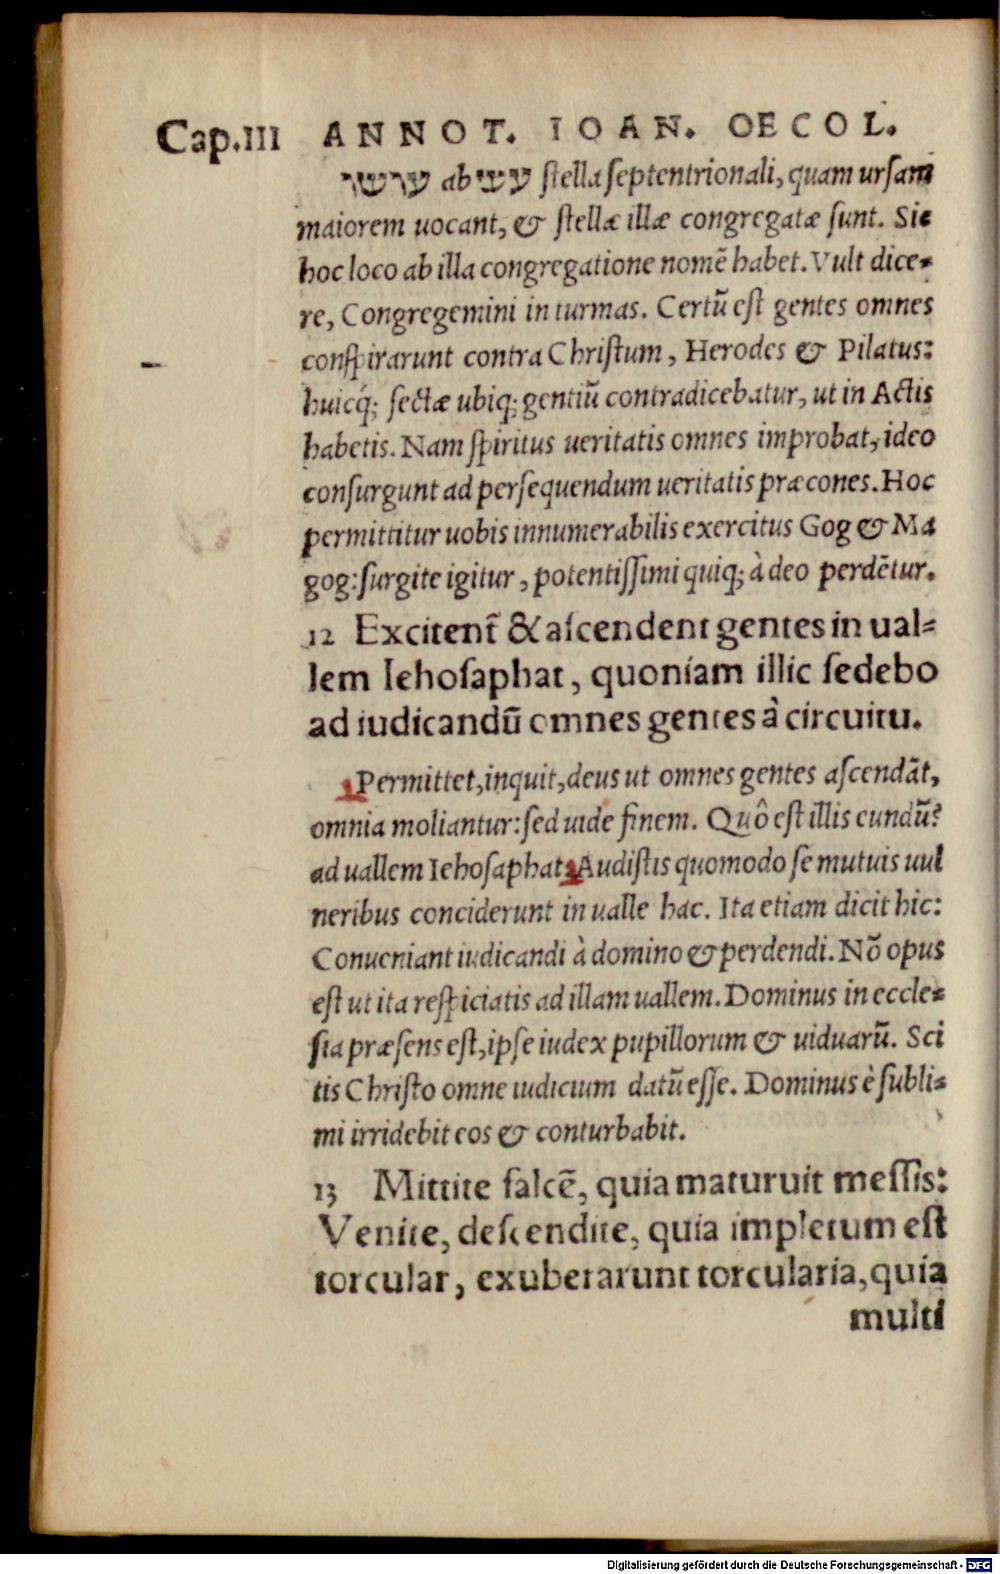 Cap.III ANNOT. IOAN. OECOL.
עושו ab עשי stella septentrionali, quam ursam
maiorem uocant, & stellæ illæ congregatæ sunt. Sic
hoc loco ab illa congregatione nomē habet. Vult dice-
re, Congregemini in turmas. Certū est gentes omnes
conspirarunt contra Christum, Herodes & Pilatus:
huicq́; sectæ ubiq; gentiū contradicebatur, ut in Actis
habetis. Nam spiritus ueritatis omnes improbat, ideo
consurgunt ad persequendum ueritatis præcones. Hoc
permittitur uobis innumerabilis exercitus Gog & Ma
gog: surgite igitur, potentissimi quiq; à deo perdētur.
12 Excitent̃ & ascendent gentes in ual-
lem Iehosaphat, quoniam illic sedebo
ad iudicandū omnes gentes à circuitu.
Permittet, inquit, deus ut omnes gentes ascendāt,
omnia moliantur: sed uide finem. Quô est illis eundū?
ad uallem Iehosaphat. Audistis quomodo se mutuis uul
neribus conciderunt in ualle hac. Ita etiam dicit hic:
Conueniant iudicandi à domino & perdendi. Nō opus
est ut ita respiciatis ad illam uallem. Dominus in eccle-
sia præsens est, ipse iudex pupillorum & uiduarū. Sci
tis Christo omne iudicium datū esse. Dominus è subli-
mi irridebit eos & conturbabit.
13 Mittite falcē, quia maturuit messis:
Venite, descendite, quia impletum est
torcular, exuberarunt torcularia, quia
multi
Digitalisierung gefördert durch die Deutsche Forschungsgemeinschaft - DFG